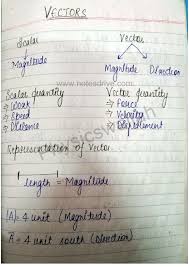 VECTORS
Scalar Vector
Magnitude
www.notesdrive.com
Magnitude Direction
Scalar quantity Vector quantity
Work Force
Speed Velocity
Distance Displacement
Representation of Vector
length = Magnitude
|A| = 4 unit (Magnitude)
A = 4 unit south (Direction)